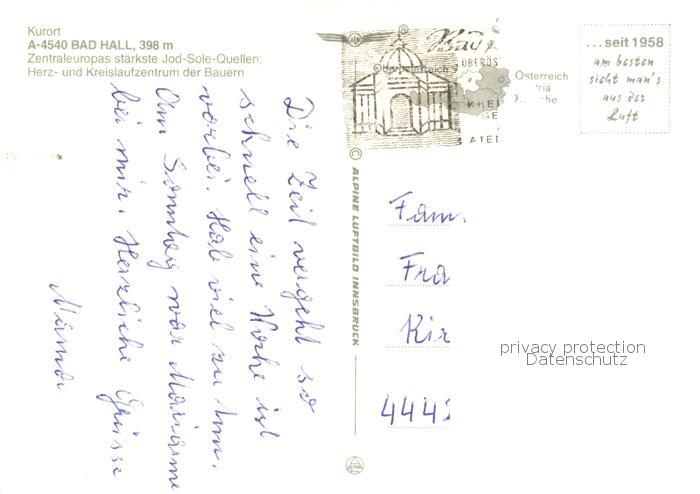 Kurort
A-4540 BAD HALL, 398 m
Zentraleuropas stärkste Jod-Sole-Quellen;
Herz- und Kreislaufzentrum der Bauern
Die Zeit vergeht so
schnell eine Woche ist
vorbei. Hab viel zu tun.
Am Sonntag war Marianne
bei mir. Herzliche Grüsse
Mama
© ALPINE LUFTBILD INNSBRUCK
Bad
OBERÖS
Oberösterreich
KREI
GE
ATEN
Österreich
...seit 1958
am besten
sieht man's
aus der
Luft
Fam.
Fra
Kir
444
privacy protection
Datenschutz